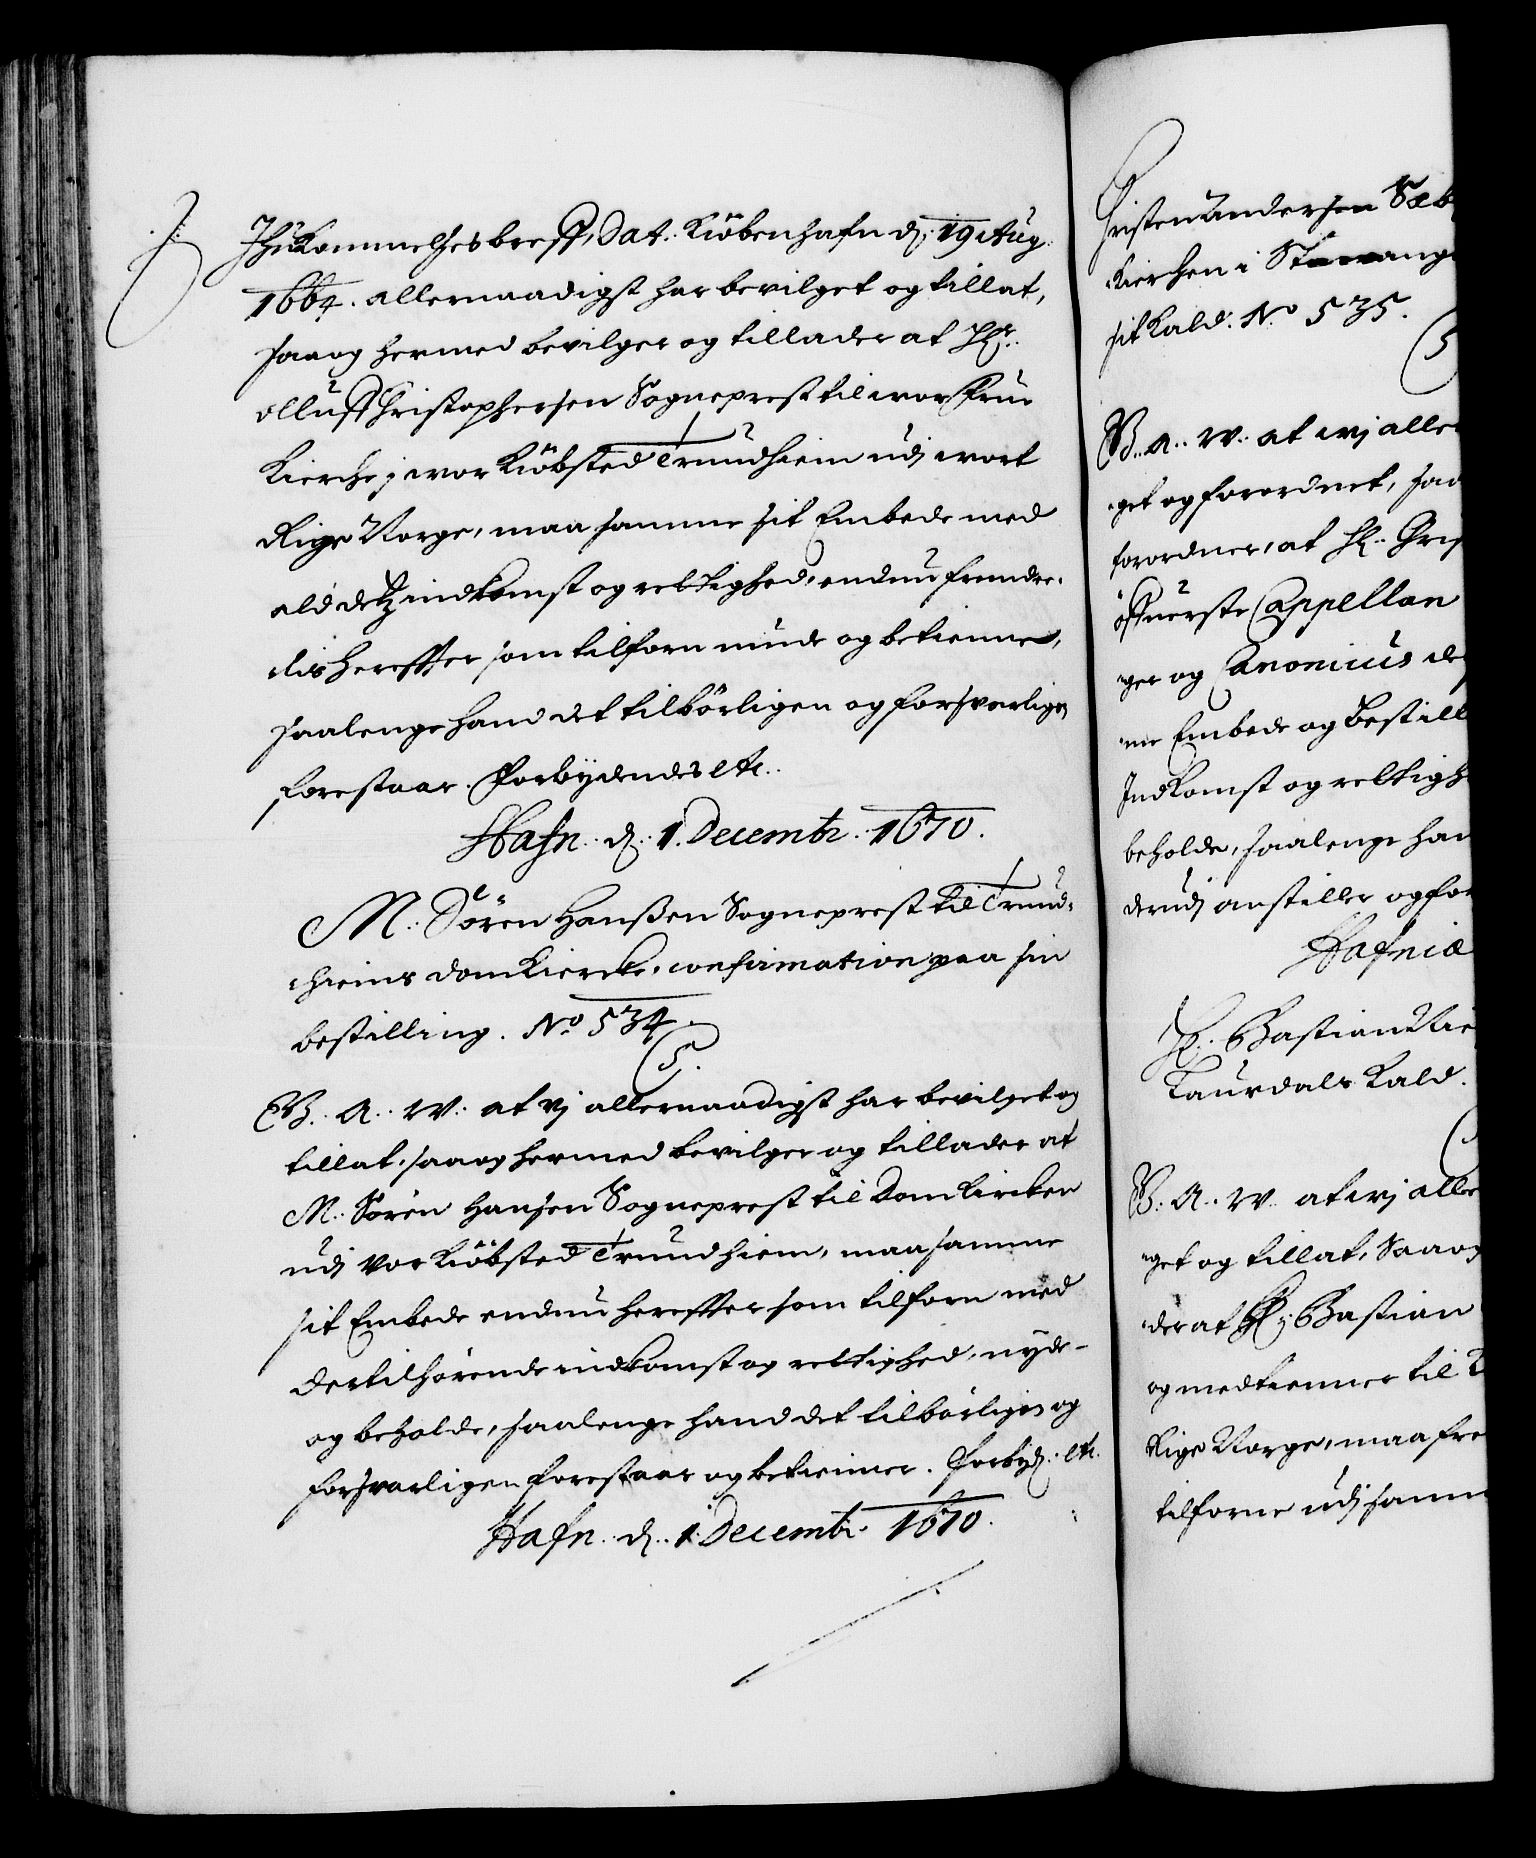 Ihukommelses breff, Dat. Kiöbenhafn d. 19 Aug.
1664. allernaadigst har bevilget og tillat,
saa og hermed bevilger og tillader at Hr.
Olluff Christophersen Sogneprest til wor Frue
Kierche j wor Kiöbsted Trundhiem udj wort
Rige Norge, maa samme sit Embede med
ald detz indkomst og rettighed, endnu fremde-
lis herefter som tilforn niude og betienne,
saalenge hand det tilbörligen og forsvarligen
forestaar. Forbydendes etc.
Hafn. d. 1. Decembr. 1670.
M. Sören Hanßen Sogneprest til Trund-
hiems domKiercke, confirmation paa sin
bestilling. No 534.
C5.
G. A. W. at vj allernaadigst har bevilget og
tillat, saa og hermed bevilger og tillader at
M. Sören Hansen Sogneprest til Dom Kircken
udj vor Kiöbsted Trundhiem, maa samme
sit Embede endnu herefter som tilforn med
dertilhörende indkomst og rettighed, nyde
og beholde, saalenge hand det tilbörligen og
forsvarligen forestaar og betienner. Forbyd. etc.
Hafn. d. 1. Decembr. 1670.
Christen Andersen
Kierchen i Stawang
sit Kald. No 535.
G. A. W. at wj aller
get og forordnet, saa
forordner, at Hr. Chris
öffuerste Cappellan
ger og Canonicus
me Embede og bestill
Indkomst og rettigh
beholde, saalenge han
derudj anstiller og for
Hafniæ
Hr. Bastian
Laurdals Kald.
G. A. W. at wj aller
get og tillat, Saa og
der at Hr. Bastian
og medtienner til
Rige Norge, maa fre
tilforne udj samm